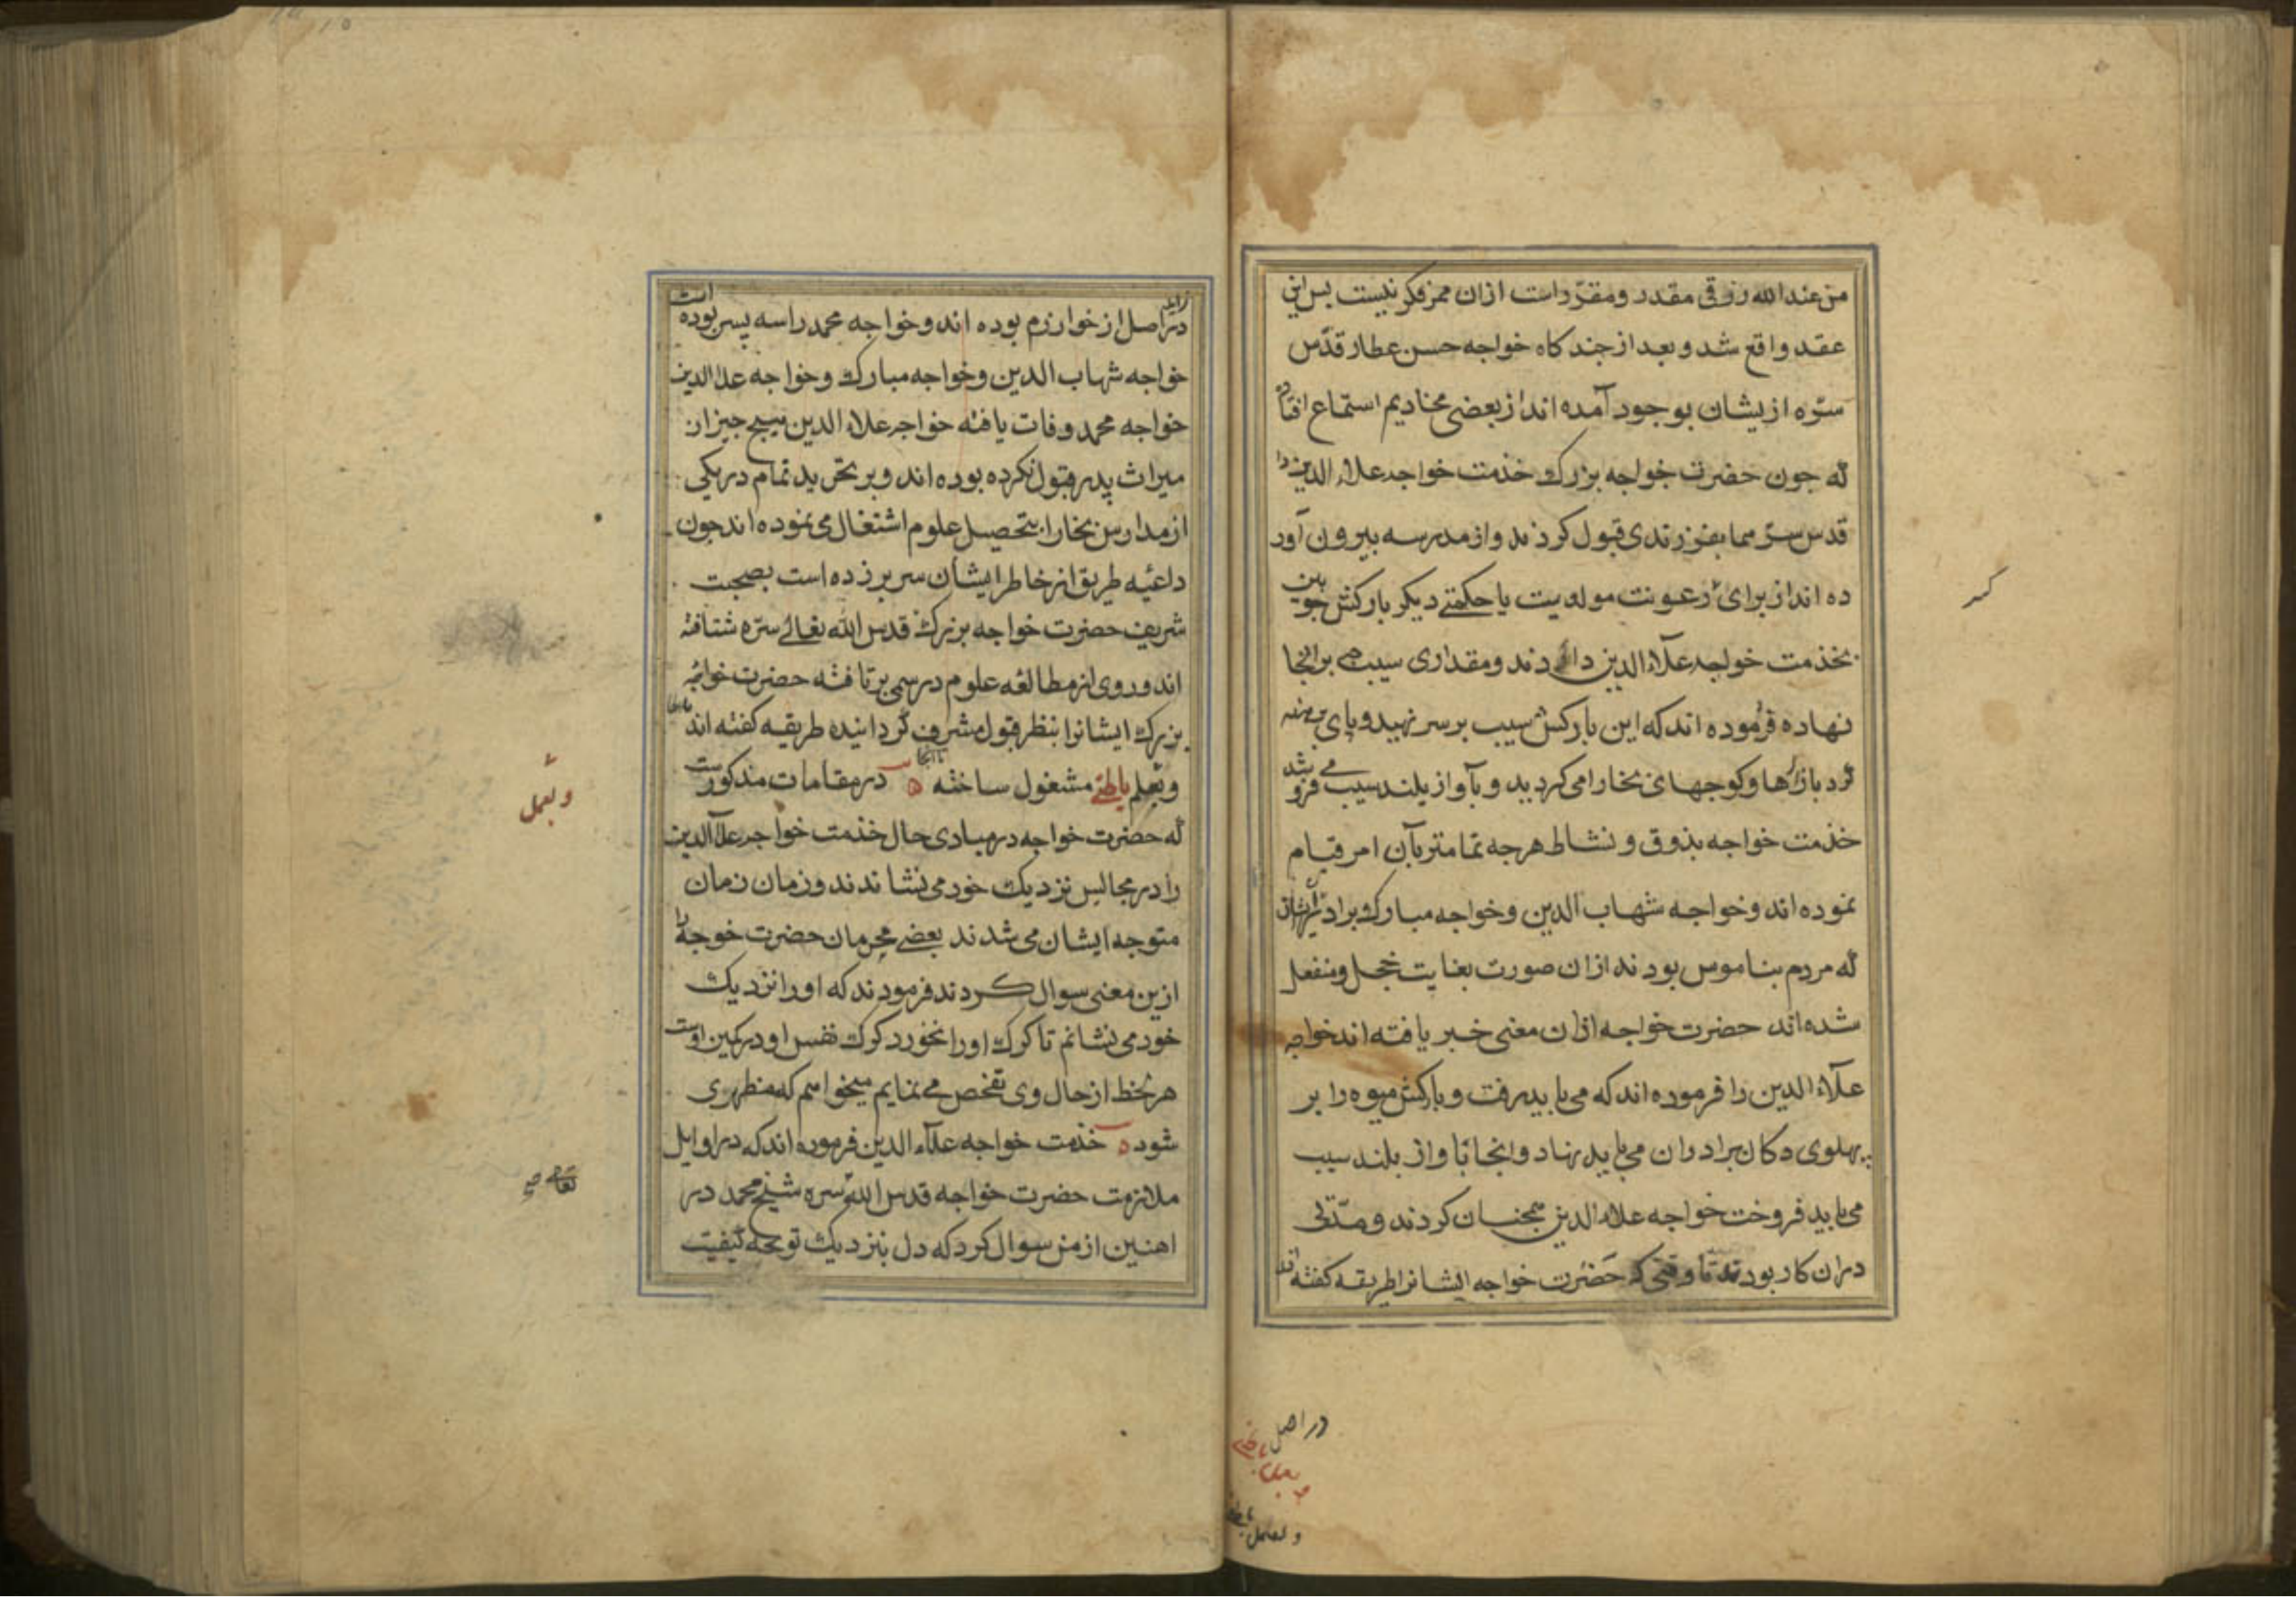 من عند الله رزقی مقدر و مقرّر است ازان ممر فکر نیست پس این
عقد واقع شد و بعد از چند کاه خواجه حسن عطار قدّس
سرّه ازیشان بوجود آمده اند از بعضی مخادیم استماع افتاده
که جون حضرت خواجه بزرك خذمت خواجه علاء الدین را
قدس سرّهما بفرزندی قبول کردند و از مدرسه بیرون آور
ده اند از برای رعونت مولویت یا حکمتے دیکر بارکش جوبین
بخذمت خواجه علآء الدین داده‌اند و مقداری سیب برانجا
نهاده فرموده اند که این بارکش سیب بر سر نهید و پای برهنه
کرد بازارها و کوجهای بخارا می کردید و بآواز بلند سیب مے فروشد
خذمت خواجه بذوق و نشاط هرجه تمامتر بآن امر قیام
نموده اند و خواجه شهاب الدین و خواجه مبارك برادران ایشان
که مردم بناموس بودند ازان صورت بغایت خجل و منفعل
شده اند حضرت خواجه ازان معنی خبر یافته اند خواجه
علآء الدین را فرموده اند که می باید رفت و بارکش میوه را بر
پهلوی دکان برادران می باید نهاد و انجا بآواز بلند سیب
می باید فروخت خواجه علاء الدین همجنان کردند و مدّتی
دران کار بودند تا وقتی که حضرت خواجه ایشانرا طریقه کفته اند
در اصل
و بعمل
در اصل از خوارزم بوده اند و خواجه محمد را سه پسر بوده است
خواجه شهاب الدین و خواجه مبارك و خواجه علاء الدین
خواجه محمد وفات یافته خواجه علاء الدین هیچ جیز از
میراث پدر قبول نکرده بوده اند و بر تجرید تمام در یکی
از مدارس بخارا بتحصیل علوم اشتغال می نموده اند جون
داعیه طریق از خاطر ایشان سر بر زده است بصحبت
شریف حضرت خواجه بزرك قدس الله تعالے سرّه شتافته
اند و روی از مطالعه علوم رسمی برتافته حضرت خواجه
بزرك ایشانرا بنظر قبول مشرف کردانیده طریقه کفته اند
و بعلم باطنے مشغول ساخته ه در مقامات مذکور ست
که حضرت خواجه در مبادی حال خذمت خواجه علآ الدین
را در مجالس نزدیك خود می نشاندند و زمان زمان
متوجه ایشان می شدند بعضے محرمان حضرت خوجه را
ازین معنی سوال کردند فرمودند که او را نزدیك
خود می نشانم تا کرك او را نخورد کرك نفس او در کمین اوست
هر لحظ از حال وی تفحص مے نمایم میخواهم که مظهری
شود ه خذمت خواجه علآء الدین فرموده اند که در اوایل
ملازمت حضرت خواجه قدس الله سره شیخ محمد در
اهنین از من سوال کرد که دل بنزدیك تو بجه کیفیت
و بعمل